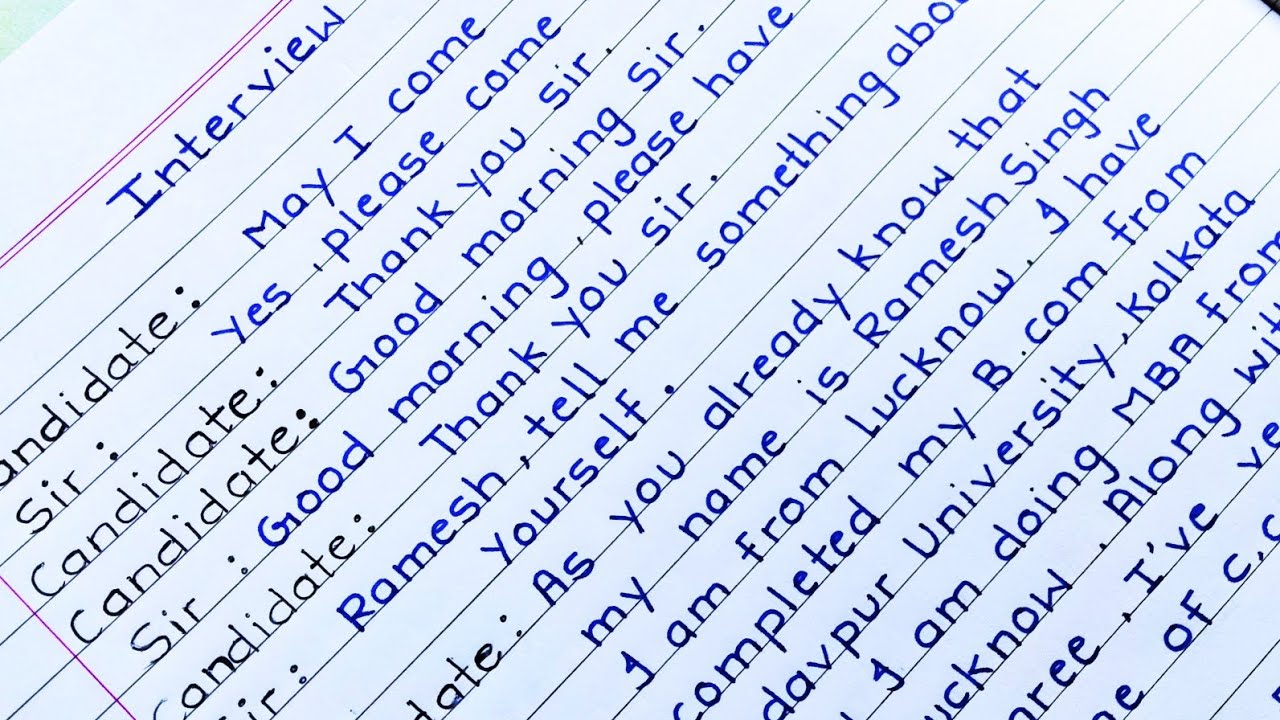 Interview
andidate: May I come
Sir: yes, please come
Candidate: Thank you sir.
Candidate: Good morning Sir.
Sir: Good morning, please have
andidate: Thank you sir.
Sir: Ramesh, tell me something abou
yourself.
date: As you already know that
my name is Ramesh Singh
I am from Lucknow. I have
completed my B.com from
davpur University, Kolkata
I am doing MBA from
ucknow. Along wit
hree, I've ve
of C,C